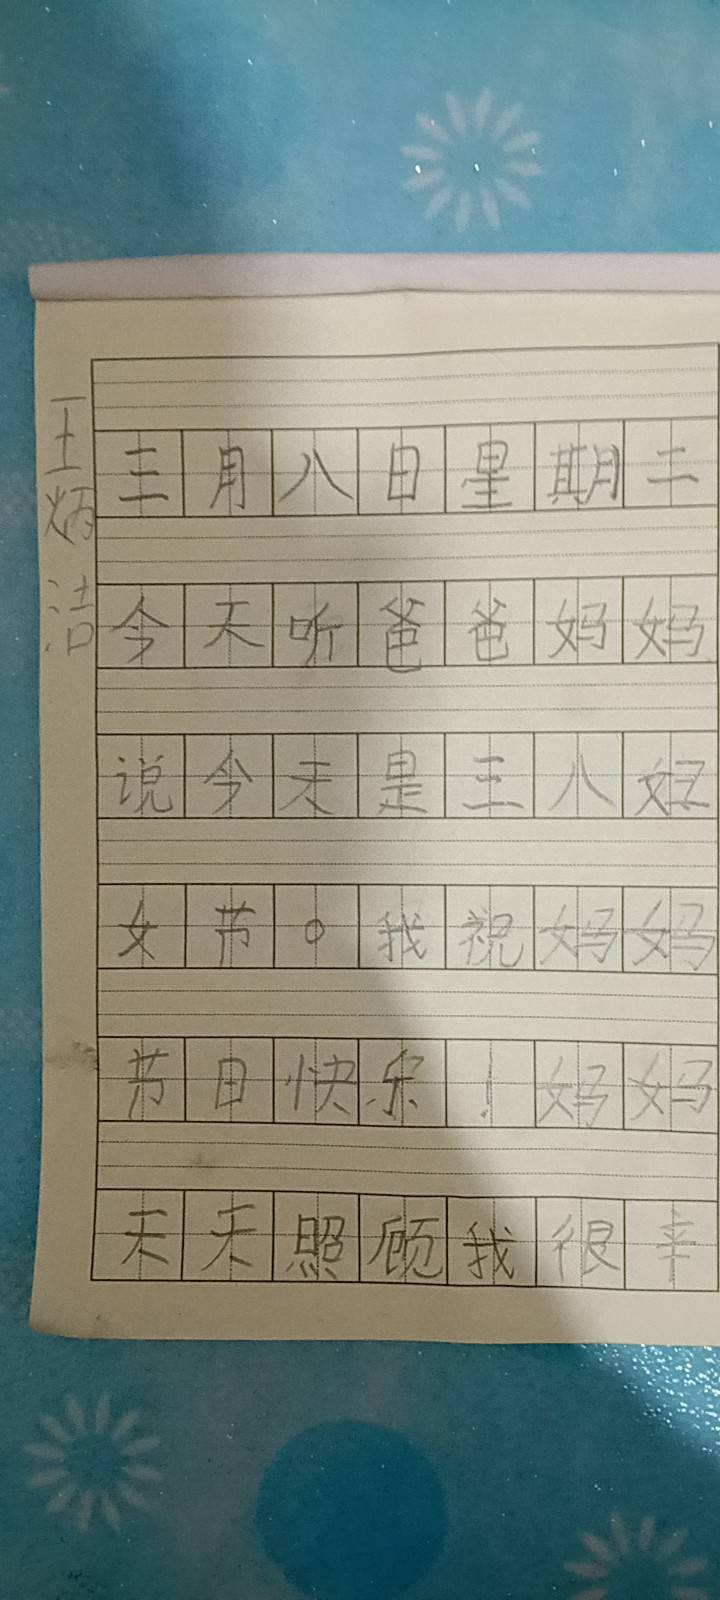 王炳洁
三月八日星期二
今天听爸爸妈妈
说今天是三八妇
女节。我祝妈妈
节日快乐！妈妈
天天照顾我很辛